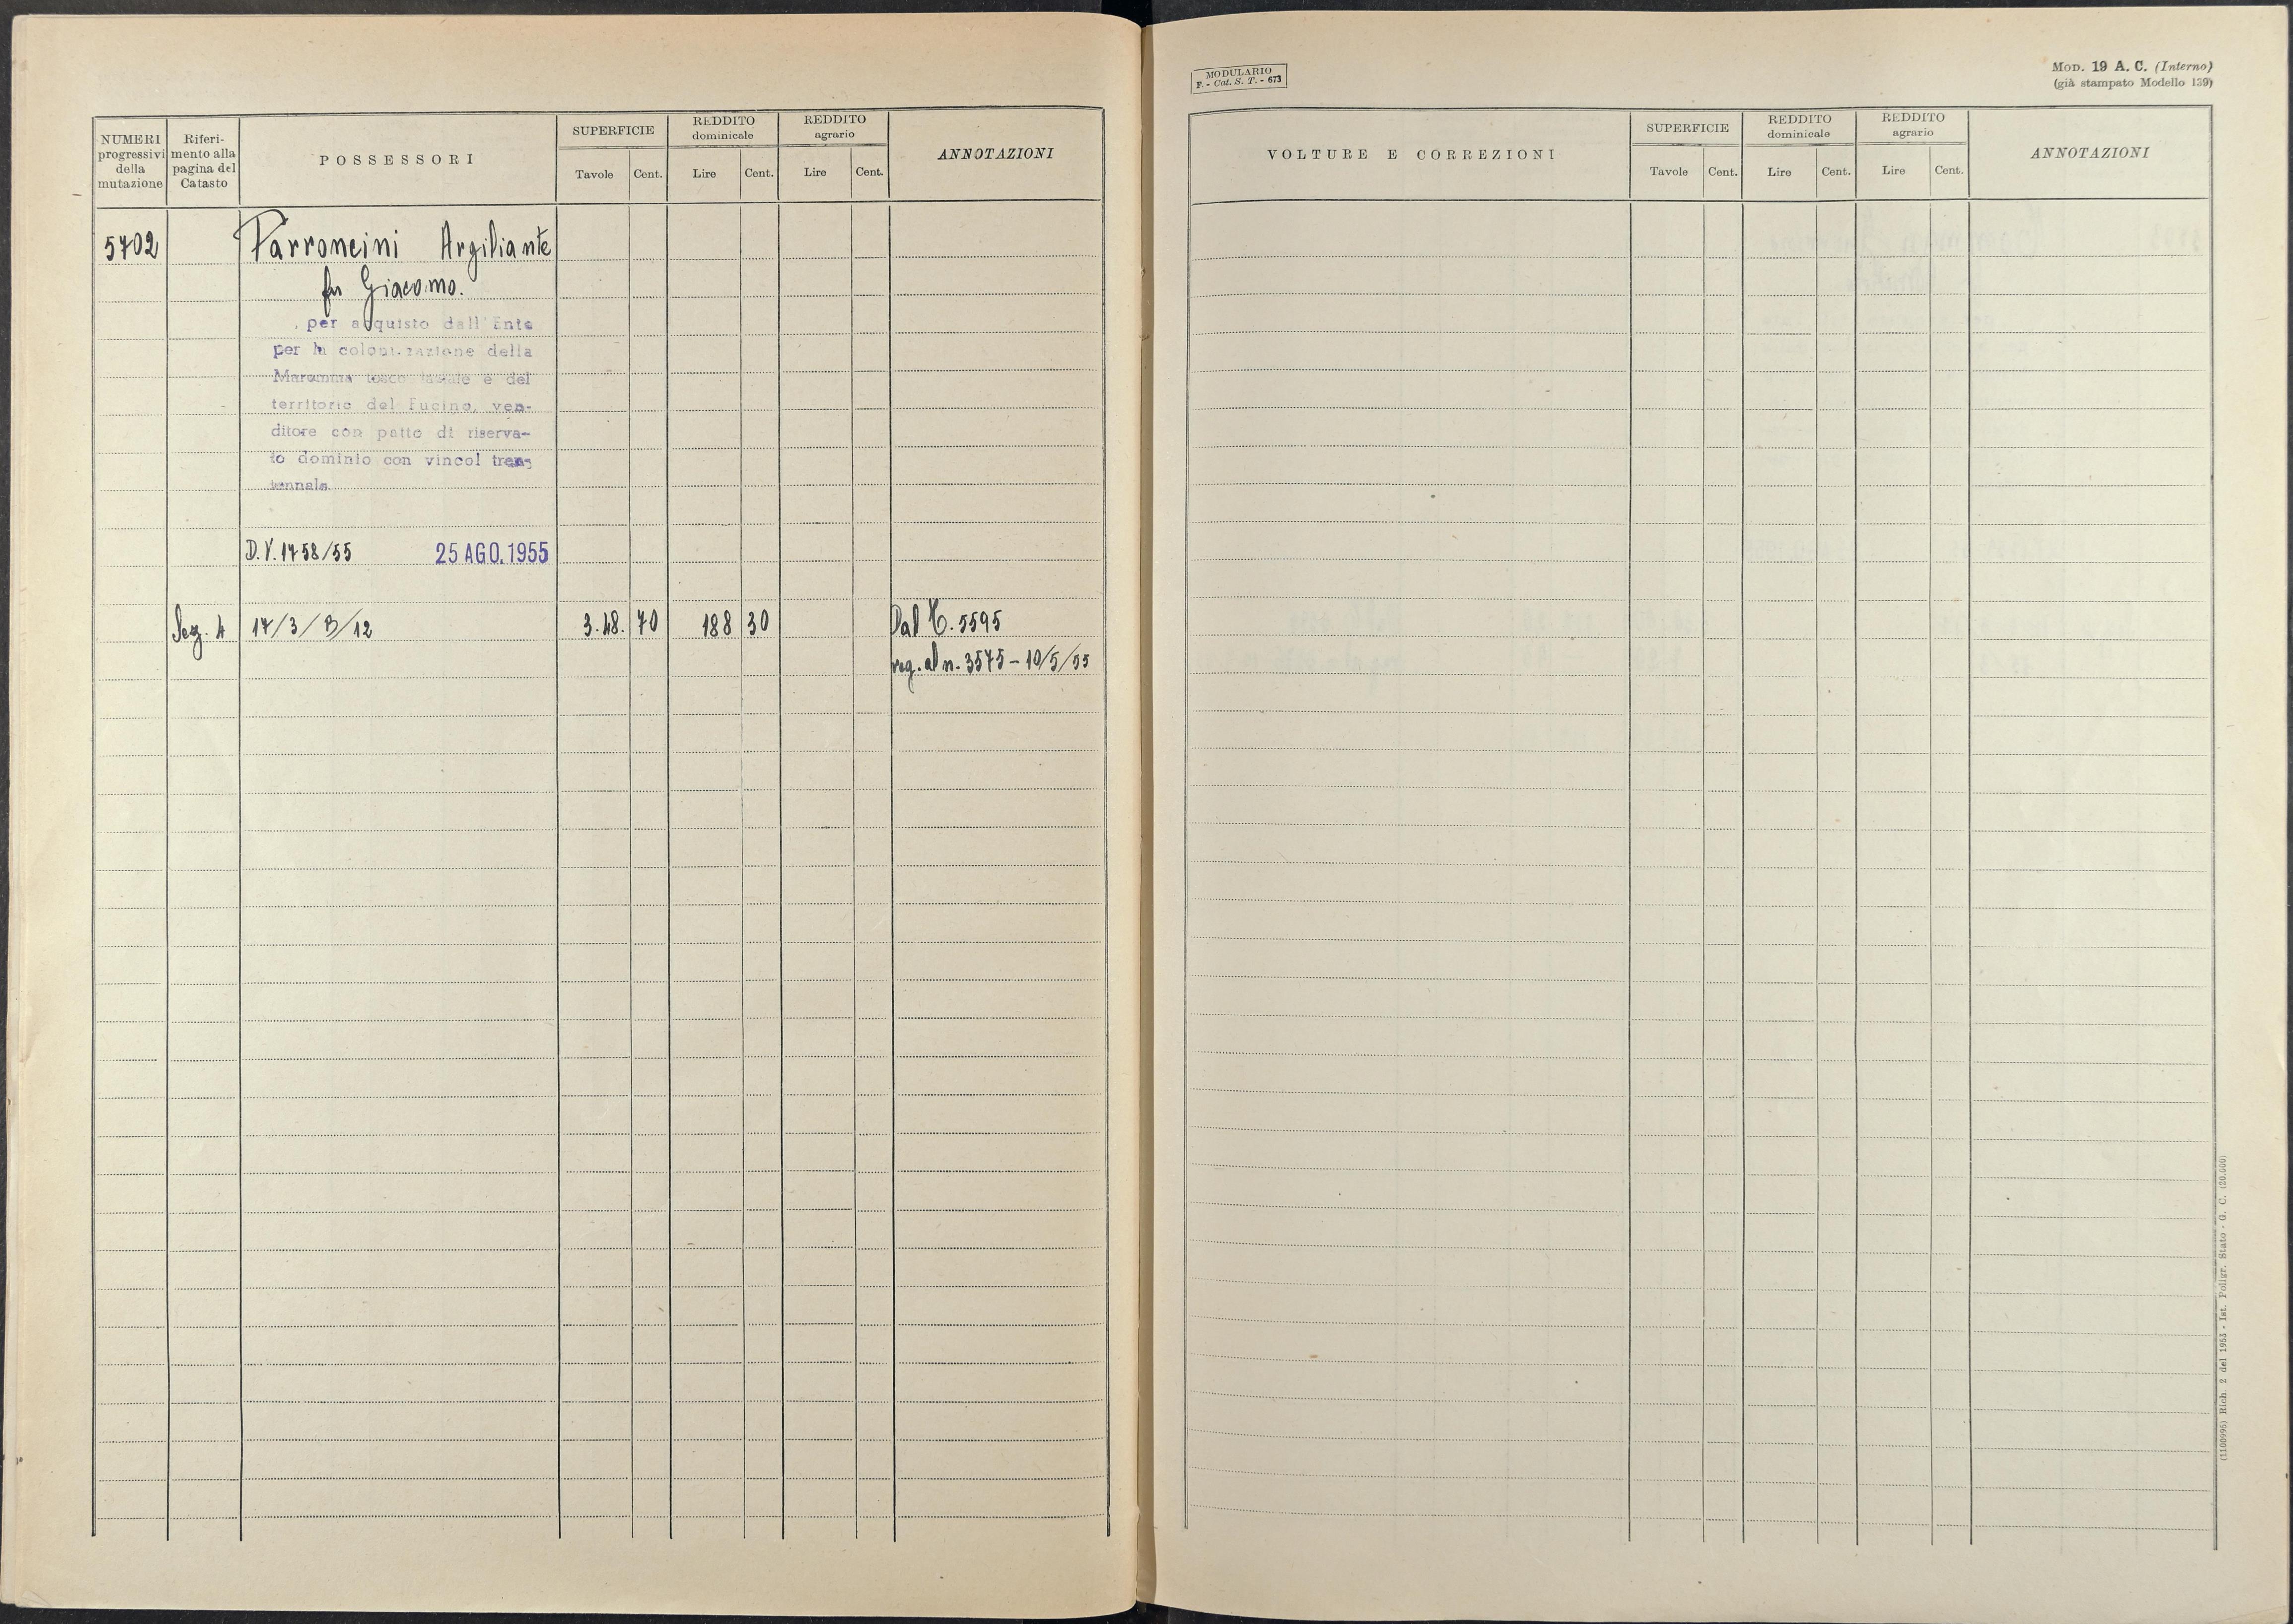 NUMERI progressivi della mutazione
Riferimento alla pagina del Catasto
POSSESSORI
SUPERFICIE
Tavole Cent.
REDDITO dominicale
Lire Cent.
REDDITO agrario
Lire Cent.
ANNOTAZIONI
5702 Parroncini Argiliante
fu Giacomo.
per acquisto dall'Ente
per la colonizzazione della
Maremma tosco laziale e del
territorio del Fucino, ven-
ditore con patto di riserva-
to dominio con vincol tren-
tennale
D.V. 1758/55 25 AGO. 1955
Sez. 4 17/3/B/12 3.48. 70 188 30 Dal C. 5595
reg. al n. 3575 - 10/5/55
MODULARIO
F. - Cat. S. T. - 673
MOD. 19 A. C. (Interno)
(già stampato Modello 139)
VOLTURE E CORREZIONI
SUPERFICIE
Tavole Cent.
REDDITO dominicale
Lire Cent.
REDDITO agrario
Lire Cent.
ANNOTAZIONI
(1100995) Rich. 2 del 1953 - Ist. Poligr. Stato - G. C. (20.000)